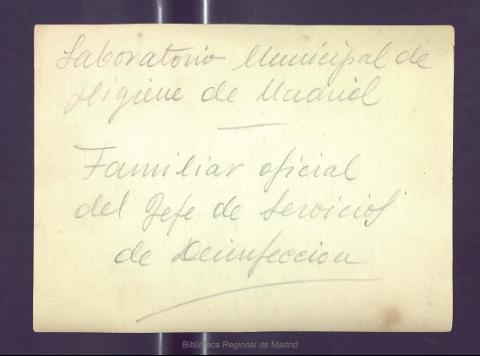 Laboratorio Municipal de
Higiene de Madrid
Familiar oficial
del Jefe de Servicios
de Desinfeccion
Biblioteca Regional de Madrid